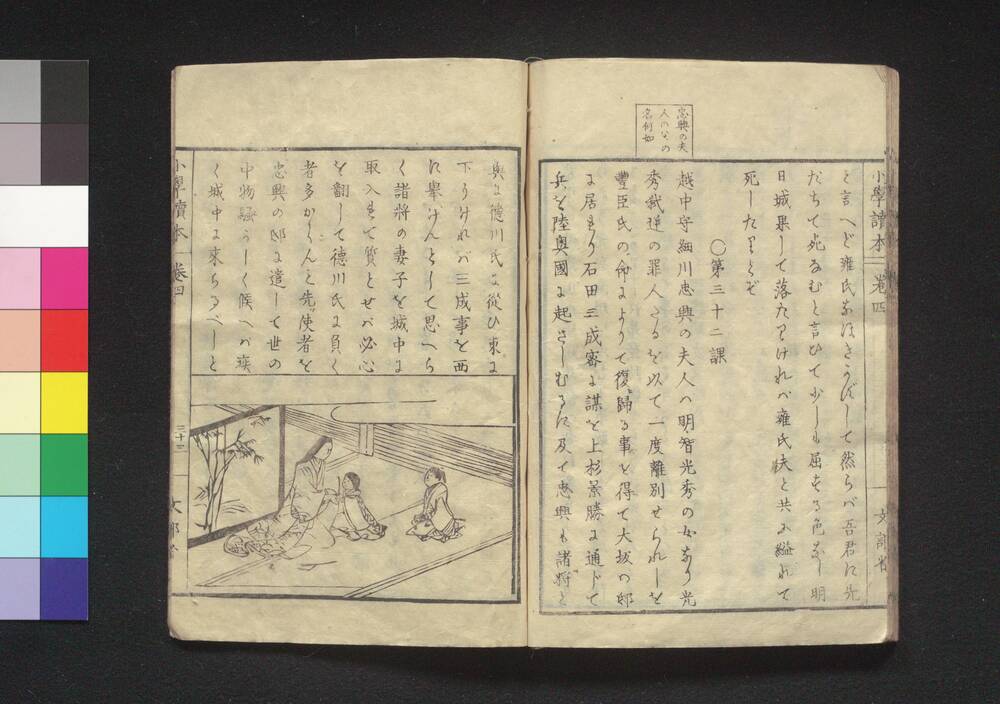 小學讀本 卷四
文部省
忠興の夫
人ハ父の
名何如
と言へど雍氏なほきかずして然らバ吾君に先
だちて死なむと言ひて少しも屈する色なし明
日城果して落たりければ雍氏夫と共に縊れて
死したりとぞ
○第三十二課
越中守細川忠興の夫人ハ明智光秀の女なり光
秀弑逆の罪人たるを以て一度離別せられしを
豊臣氏の命によりて復歸る事を得て大坂の邸
に居れり石田三成審に謀を上杉景勝に通じて
兵を陸奥國に起さしむるに及て忠興も諸將と
與に德川氏に從ひ東に
下りければ三成事を西
に擧げんとして思へら
く諸將の妻子を城中に
取入れて質とせバ必心
を翻して德川氏に負く
者多からんと先使者を
忠興の邸に遣して世の
中物騒らしく候へバ疾
く城中に來らるべしと
小學讀本 卷四
三十三
文部省